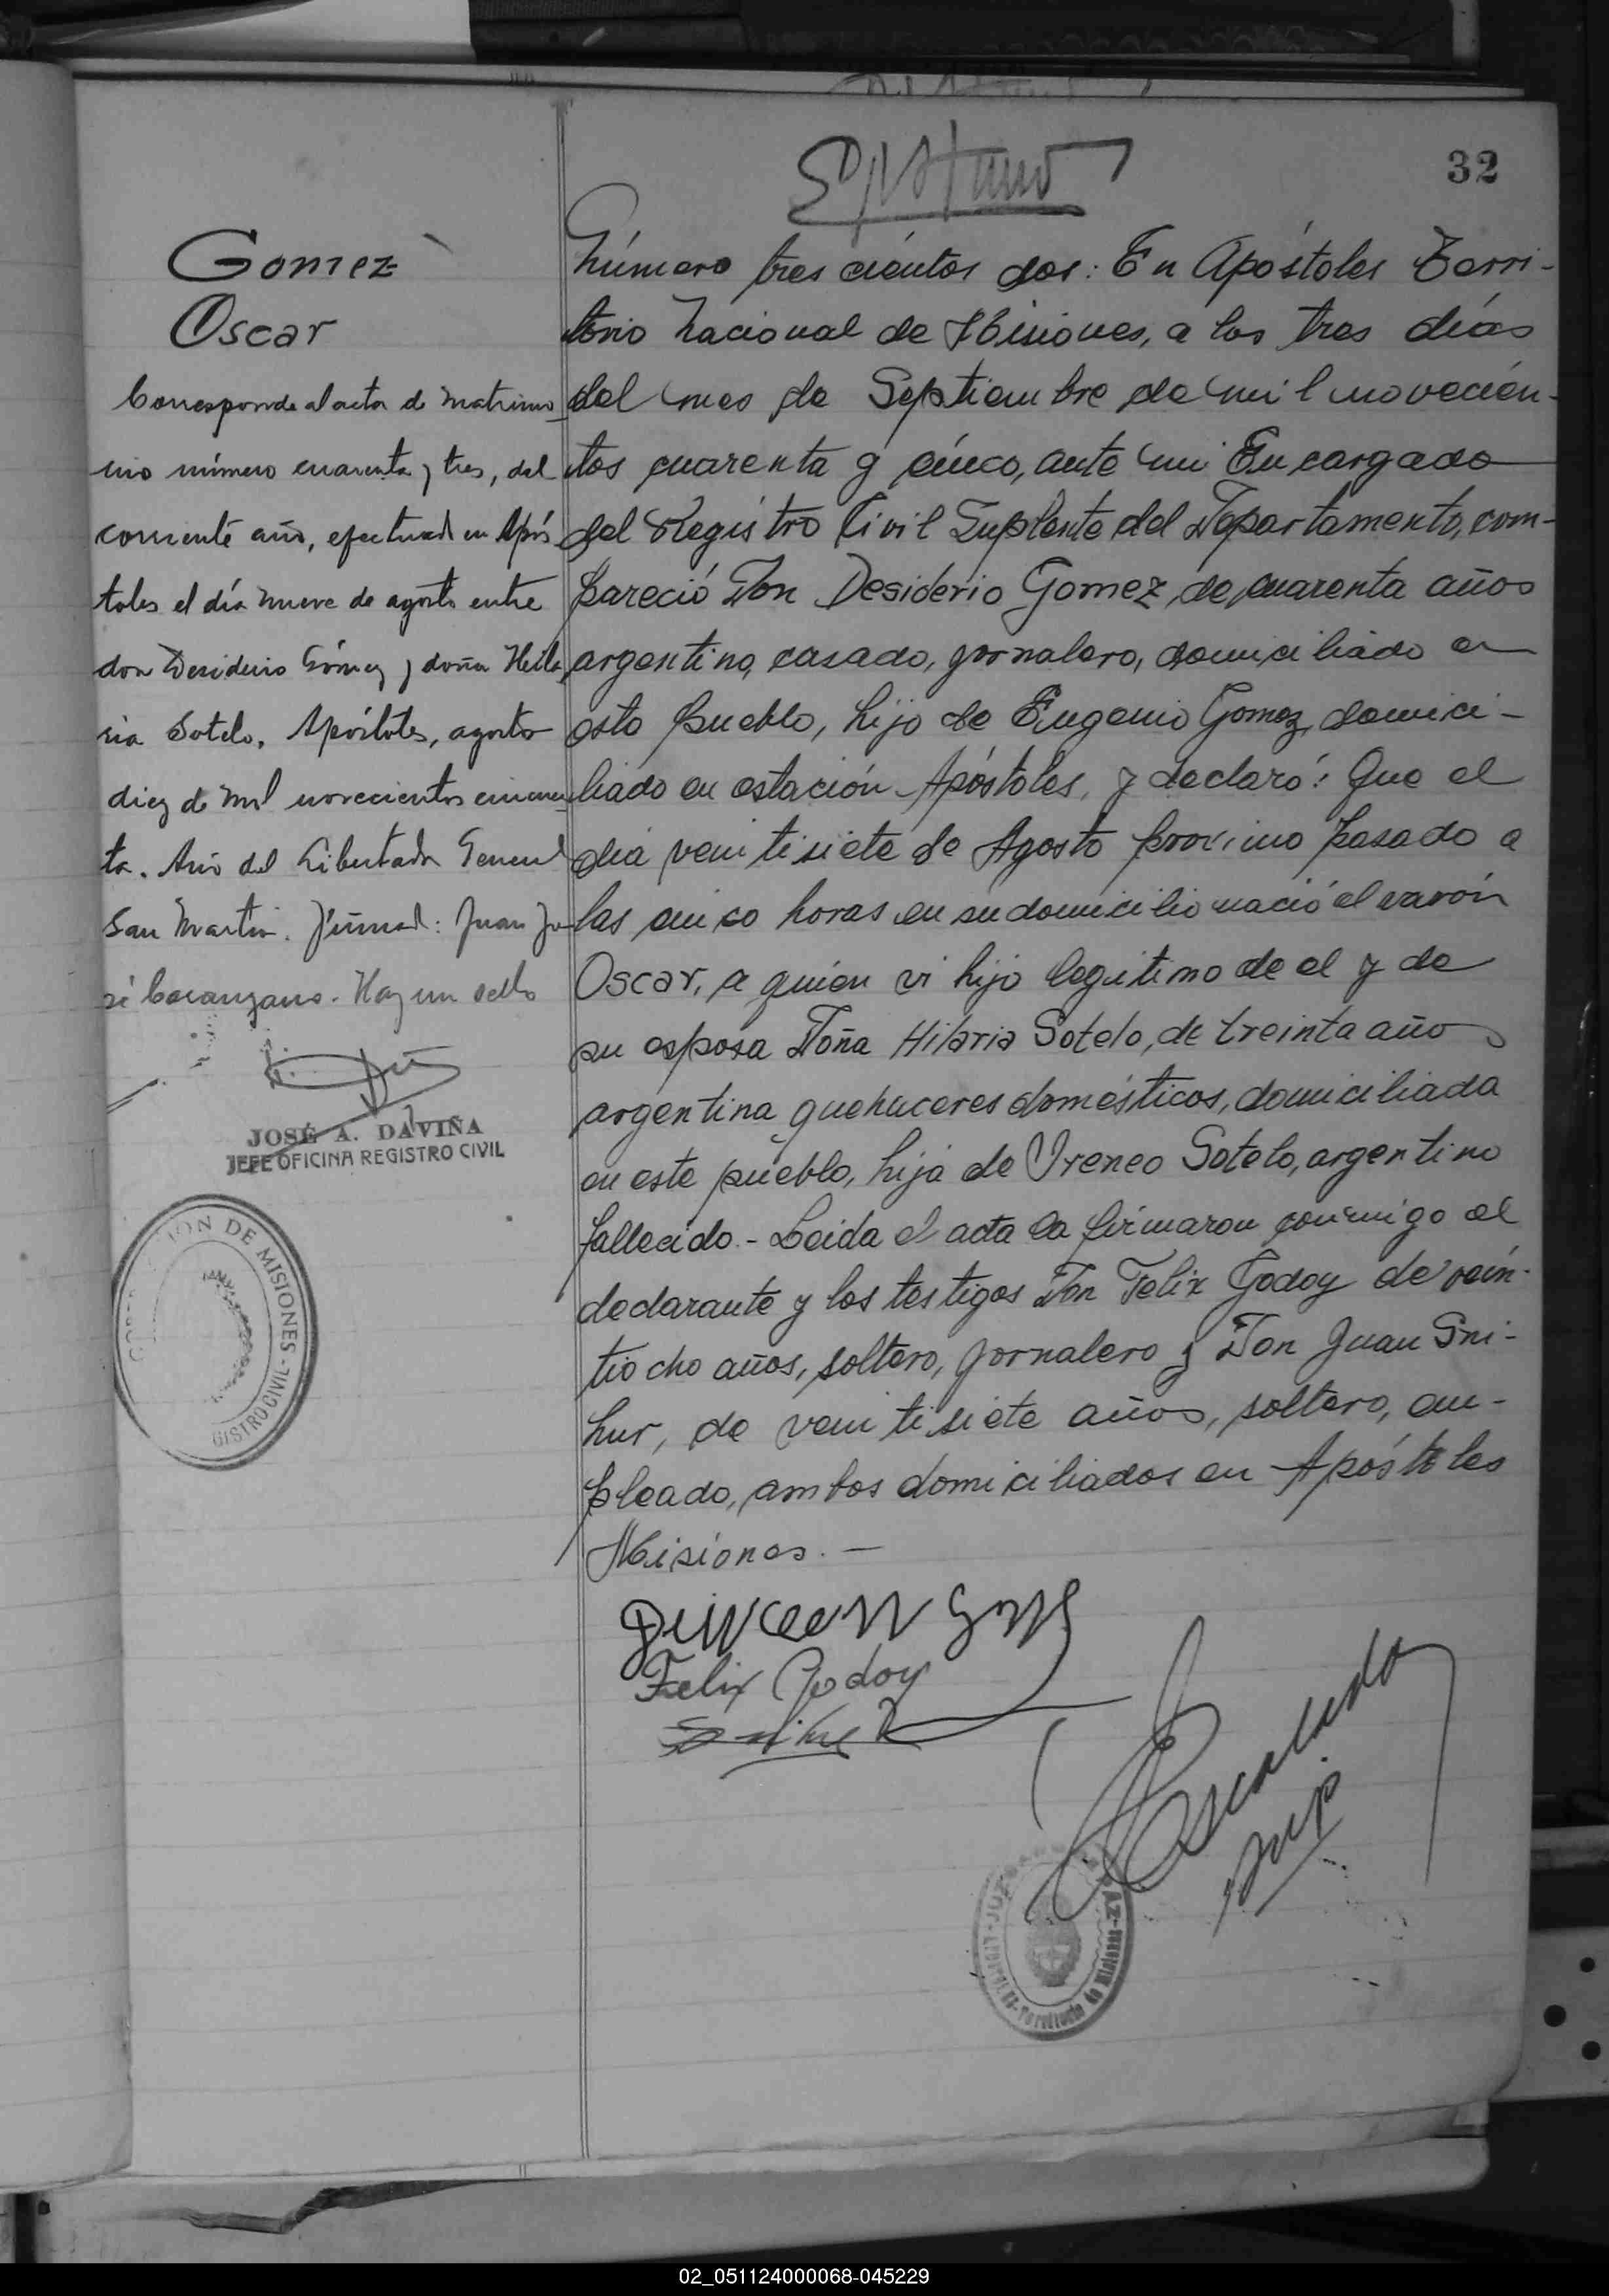 32
Gomez
Oscar
Corresponde al acta de matrimo
nio número cuarenta y tres, del
corriente año, efectuado en Após
toles el día nueve de agosto entre
don Desiderio Gómez y doña Hila
ria Sotelo. Apóstoles, agosto
diez de mil novecientos cincuen
ta. Año del Libertador General
San Martín. Firmado: Juan Jo
sé. Hay un sello
JOSÉ A. DAVIÑA
JEFE OFICINA REGISTRO CIVIL
ION DE MISIONES - GISTRO CIVIL
Número tres cientos dos: En Apóstoles Terri-
torio Nacional de Misiones, a los tres días
del mes de Septiembre de mil novecien-
tos cuarenta y cinco, ante mi Encargado
del Registro Civil Suplente del Departamento, com-
pareció Don Desiderio Gomez, de cuarenta años
argentino, casado, jornalero, domiciliado en
este pueblo, hijo de Eugenio Gomez, domici-
liado en estación Apóstoles, y declaró: Que el
día veintisiete de Agosto proximo pasado a
las cinco horas en su domicilio nació el varón
Oscar, a quien vi hijo legitimo de el y de
su esposa Doña Hilaria Sotelo, de treinta años
argentina quehaceres domésticos, domiciliada
en este pueblo, hija de Ireneo Sotelo, argentino
fallecido.- Leida el acta la firmaron conmigo el
declarante y los testigos Don Felix Godoy de vein-
tiocho años, soltero, jornalero y Don Juan Sni-
hur, de veintisiete años, soltero, em-
pleado, ambos domiciliados en Apóstoles
Misiones.-
Felix Godoy
Escalada
Sup
02_051124000068-045229